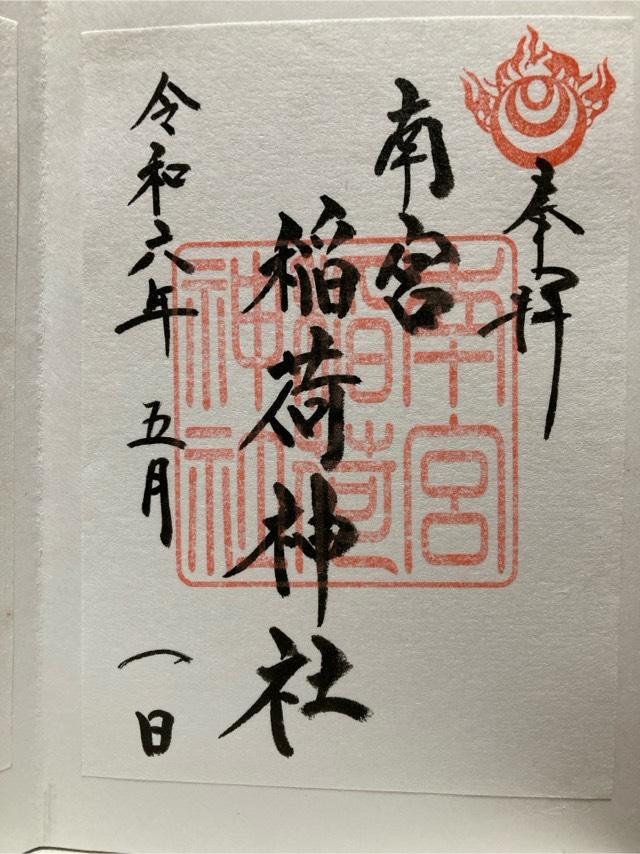 奉拝
南宮
稲荷神社
令和六年 五月 一日
南宮
稲荷
神社